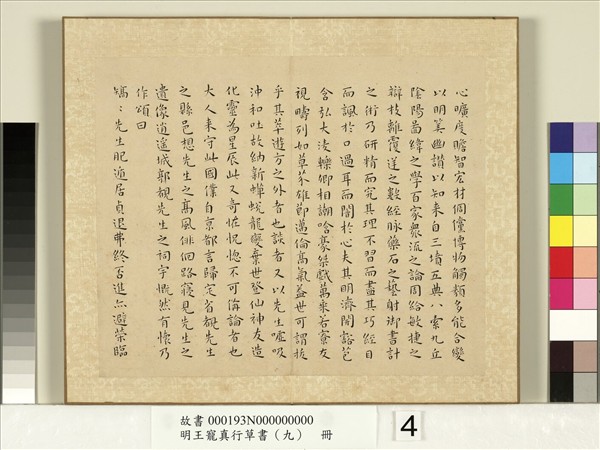 心曠度贍智宏材倜儻博物觸類多能合變
以明筭幽讚以知來自三墳五典八索九丘
陰陽圖緯之學百家衆流之論周給敏捷之
辯枝離覆逆之數經脉藥石之藝射御書計
之術乃研精而究其理不習而盡其巧經目
而諷於口過耳而闇於心夫其明濟開豁苞
含弘大淩轢卿相謿哈豪桀戲萬乘若寮友
視疇列如草芥雄節邁倫高氣蓋世可謂拔
乎其萃遊方之外者也談者又以先生噓吸
沖和吐故納新蟬蛻龍變棄世登仙神友造
化靈為星辰此又奇怪恍惚不可備論者也
大人来守此國僕自京都言歸定省覩先生
之縣邑想先生之高風徘徊路寢見先生之
遺像逍遙城郭覩先生之祠宇慨然有懷乃
作頌曰
矯〻先生肥遁居貞退弗終否進亦避榮臨
故書 000193N000000000
明王寵真行草書（九） 冊
4